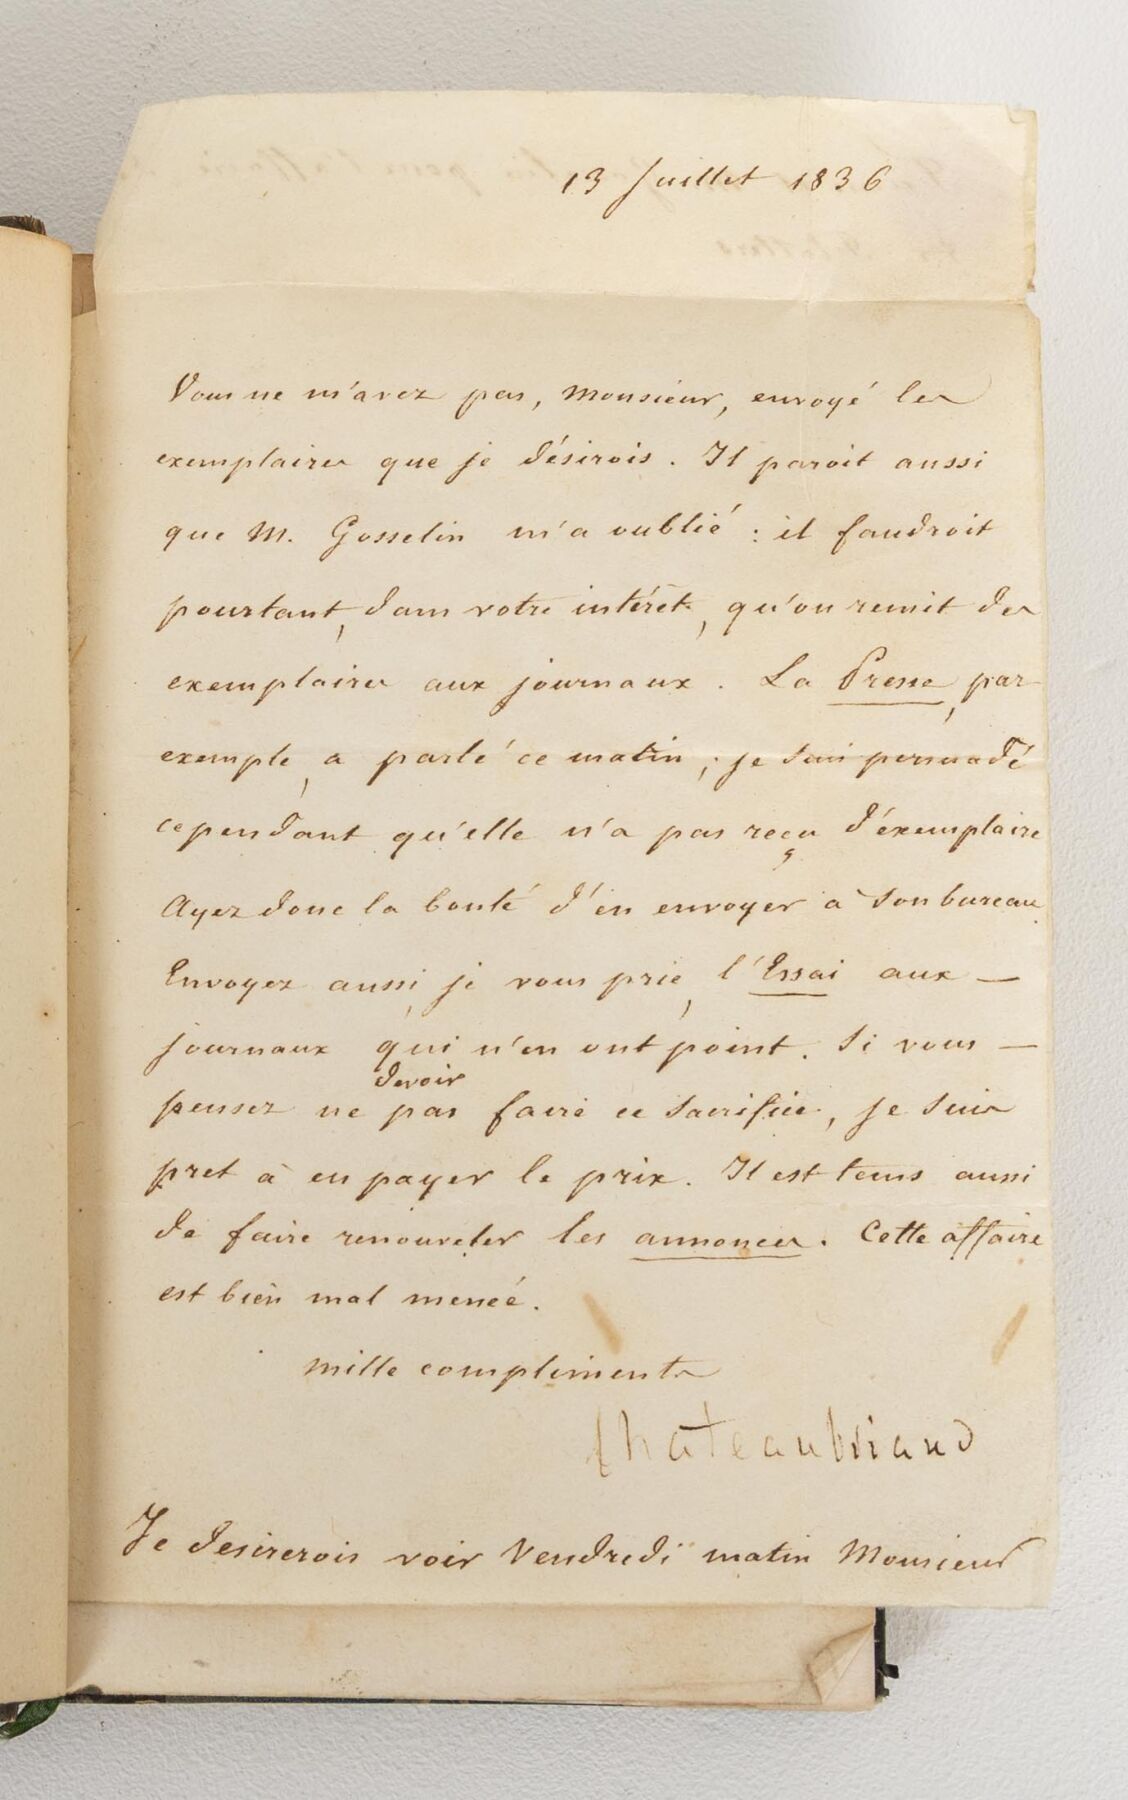 13 Juillet 1836
Vous ne m'avez pas, Monsieur, envoyé les
exemplaires que je désirois. Il paroit aussi
que M. Gosselin m'a oublié : il faudroit
pourtant, dans votre intérêt, qu'on remit des
exemplaires aux journaux. La Presse, par
exemple, a parlé ce matin ; je suis persuadé
cependant qu'elle n'a pas reçu d'éxemplaire
Ayez donc la bonté d'en envoyer à son bureau.
Envoyez aussi, je vous prie, l'Essai aux —
journaux qui n'en ont point. Si vous —
devoir
pensez ne pas faire ce sacrifice, je suis
pret à en payer le prix. Il est tems aussi
de faire renouveler les annonces. Cette affaire
est bien mal menée.
mille compliments
Chateaubriand
Je desirerois voir Vendredi matin Monsieur